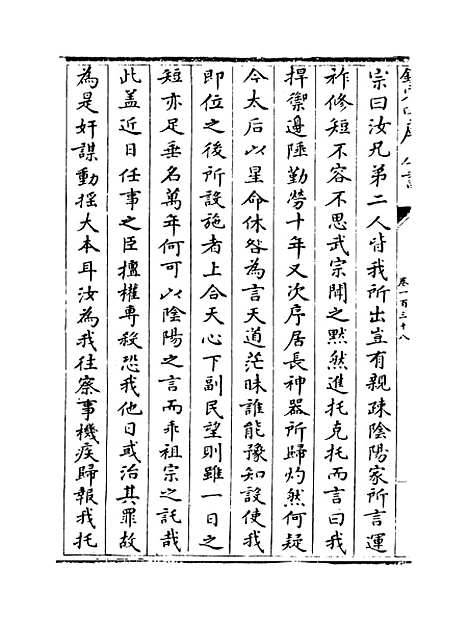 欽定四庫全書
卷一百三十八
宗曰汝兄弟二人皆我所出豈有親疎陰陽家所言運
祚修短不容不思武宗聞之黙然進托克托而言曰我
捍禦邊陲勤勞十年又次序居長神器所歸灼然何疑
今太后以星命休咎為言天道茫昧誰能豫知設使我
即位之後所設施者上合天心下副民望則雖一日之
短亦足垂名萬年何可以陰陽之言而乖祖宗之託哉
此盖近日任事之臣擅權専殺恐我他日或治其罪故
為是奸謀動揺大本耳汝為我往察事機疾歸報我托